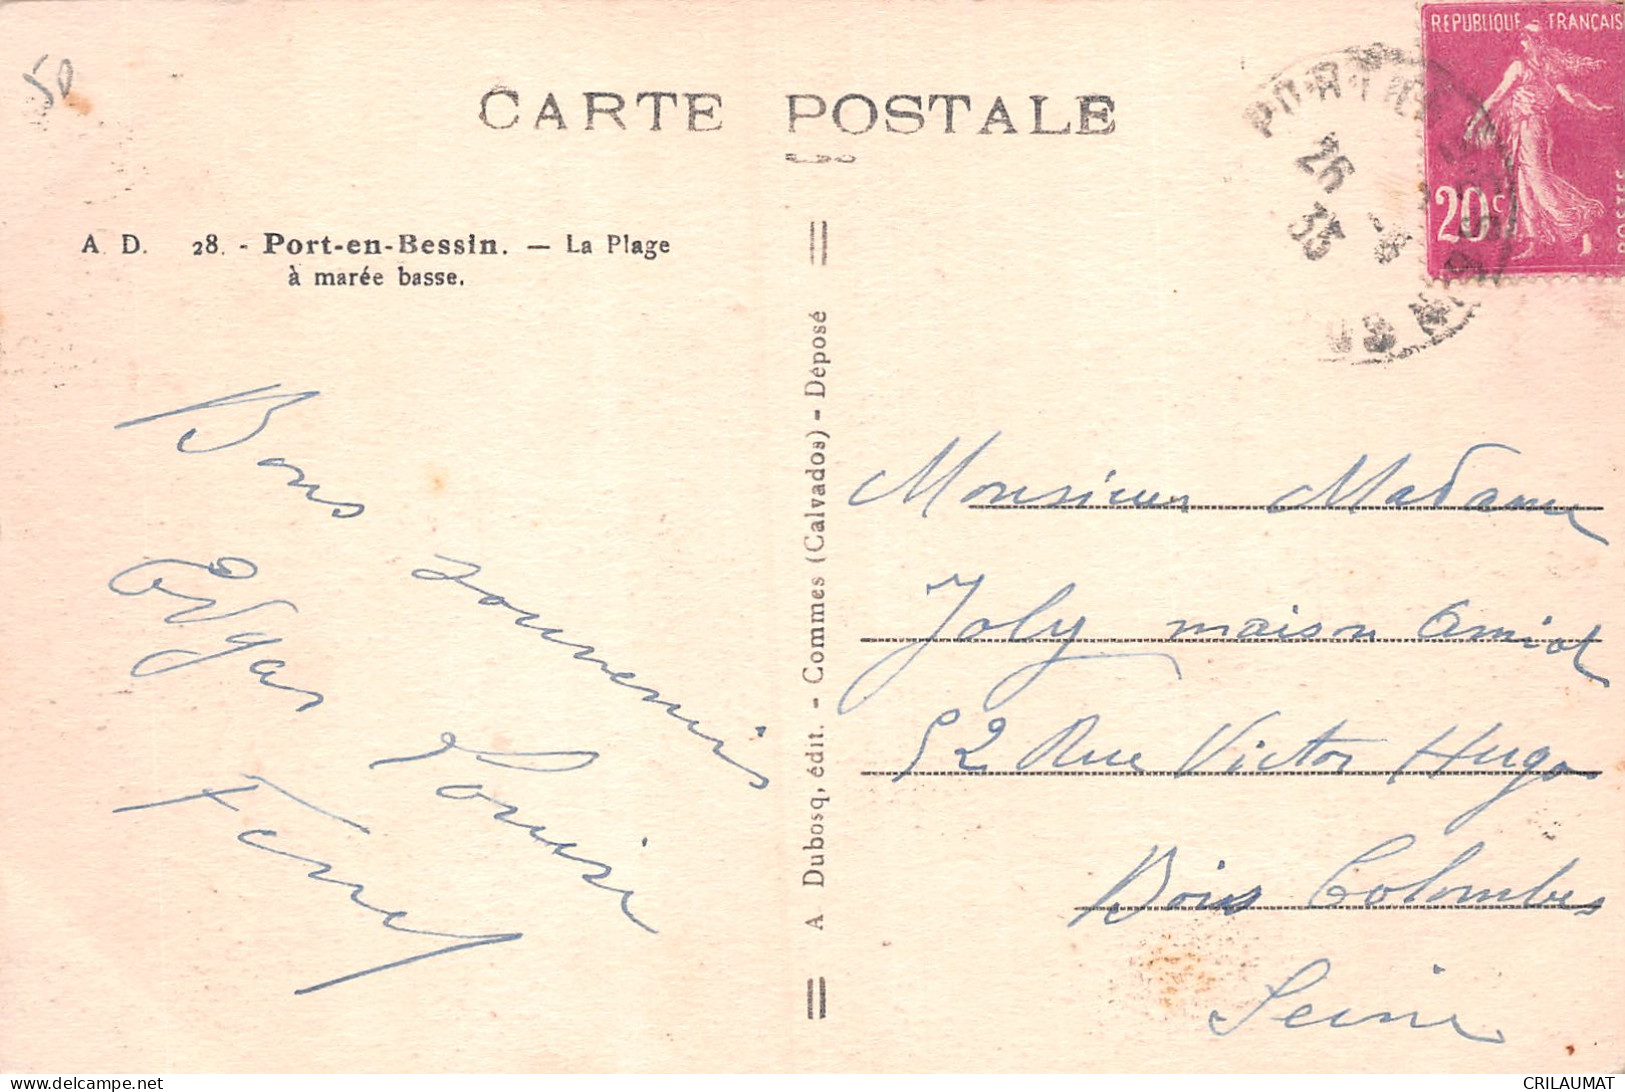 50
CARTE POSTALE
REPUBLIQUE FRANÇAIS
20c
POSTES
26
33
A. D. 28. - Port-en-Bessin. — La Plage
à marée basse.
Bons souvenirs
Edgar Louise
Ferey
A Dubosq, édit. - Commes (Calvados) - Déposé
Monsieur Madame
Joly maison Amiot
52 Rue Victor Hugo
Bois Colombes
Seine
delcampe.net
CRILAUMAT